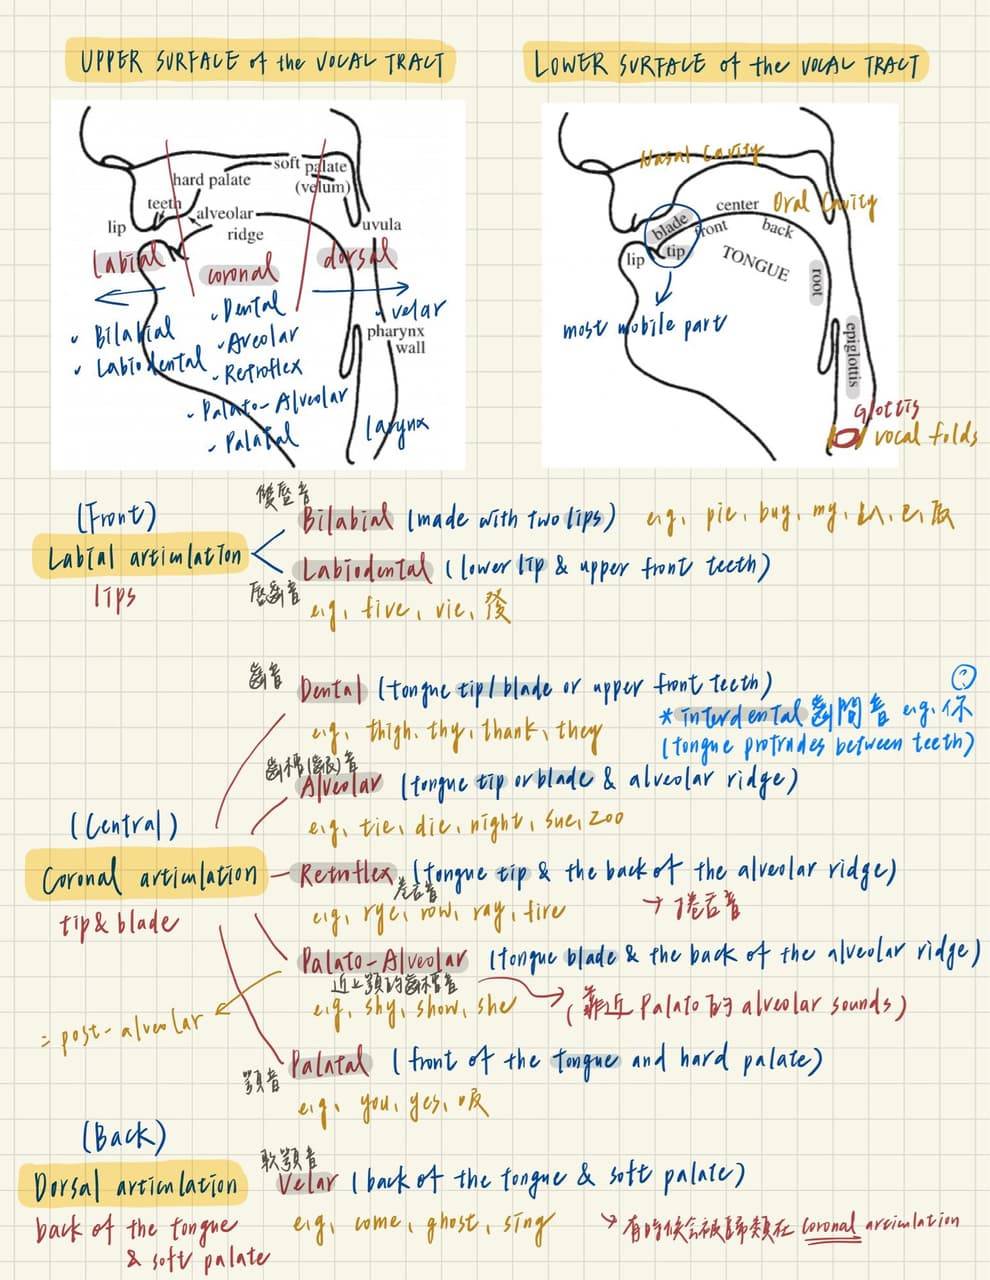 UPPER SURFACE of the VOCAL TRACT
soft palate
(velum)
hard palate
teeth
alveolar
ridge
lip
uvula
Labial
coronal
dorsal
• Bilabial
• Labiodental
• Dental
• Aveolar
• Retroflex
• Palato-Alveolar
• Palatal
• velar
pharynx
wall
larynx
LOWER SURFACE of the VOCAL TRACT
Nasal Cavity
Oral Cavity
center
blade
front
back
tip
lip
TONGUE
root
most mobile part
epiglottis
Glottis
vocal folds
(Front)
Labial articulation
lips
雙唇音
Bilabial (made with two lips) e.g. pie, buy, my,
Labiodental (lower lip & upper front teeth)
唇齒音
e.g. five, vie, 發
齒音
Dental (tongue tip/blade or upper front teeth)
e.g. thigh, thy, thank, they
?
* interdental 齒間音 e.g. 你
(tongue protrudes between teeth)
齒槽(齦)音
Alveolar (tongue tip or blade & alveolar ridge)
e.g. tie, die, night, sue, zoo
(Central)
Coronal articulation
tip & blade
Retroflex (tongue tip & the back of the alveolar ridge)
捲舌音
e.g. rye, row, ray, fire
→ 捲舌音
Palato-Alveolar (tongue blade & the back of the alveolar ridge)
近上顎的齒槽音
e.g. shy, show, she
(靠近 Palato 的 alveolar sounds)
= post-alveolar
Palatal (front of the tongue and hard palate)
顎音
e.g. you, yes,
(Back)
Dorsal articulation
back of the tongue
& soft palate
軟顎音
Velar (back of the tongue & soft palate)
e.g. come, ghost, sing
→ 有時候會被歸類在 coronal articulation